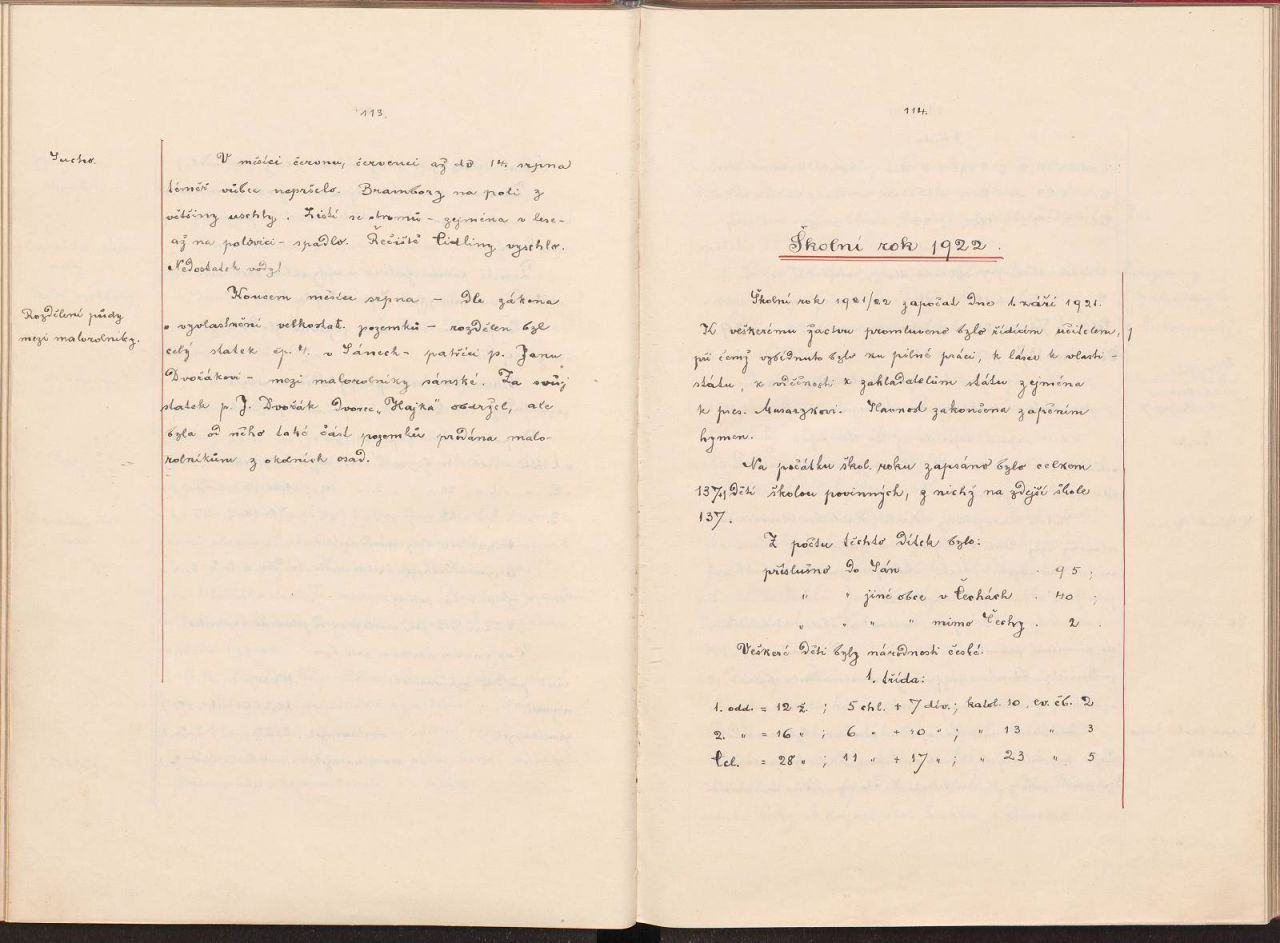 113.
Sucho.
V měsíci červnu, červenci až do 14. srpna
téměř vůbec nepršelo. Brambory na poli z
většiny uschly. Listí se stromů - zejména v lese -
až na polovici - spadlo. Řečiště Cidliny vyschlo.
Nedostatek vody!
Rozdělení půdy
mezi malorolníky.
Koncem měsíce srpna - dle zákona
o vyvlastnění velkostat. pozemků - rozdělen byl
celý statek čp. v Sánech - patřící p. Janu
Dvořákovi - mezi malorolníky sánské. Za svůj
statek p. J. Dvořák dvorec „Hajka" obdržel, ale
byla od něho také část pozemků prodána malo-
rolníkům z okolních osad.
114.
Školní rok 1922.
Školní rok 1921/22 započat dne 1. září 1921.
K veškerému žactvu promluveno bylo řídícím učitelem,
při čemž vybídnuto bylo ku pilné práci, k lásce k vlasti -
státu, k vděčnosti k zakladatelům státu zejména
k pres. Masarykovi. Slavnost zakončena zapěním
hymen.
Na počátku škol. roku zapsáno bylo celkom
137 dětí školou povinných, z nichž na zdejší škole
137.
Z počtu těchto dítek bylo:
příslušno do Sán 95;
" " jiné obce v Čechách . 40 ;
" " " " mimo Čechy . 2 .
Veškeré děti byly národnosti české.
1. třída:
1. odd. = 12 ž. ; 5 chl. + 7 dív.; katol. 10, ev. čb. 2
2. " = 16 " ; 6 " + 10 " ; " 13 " 3
Cel. = 28 " ; 11 " + 17 " ; " 23 " 5